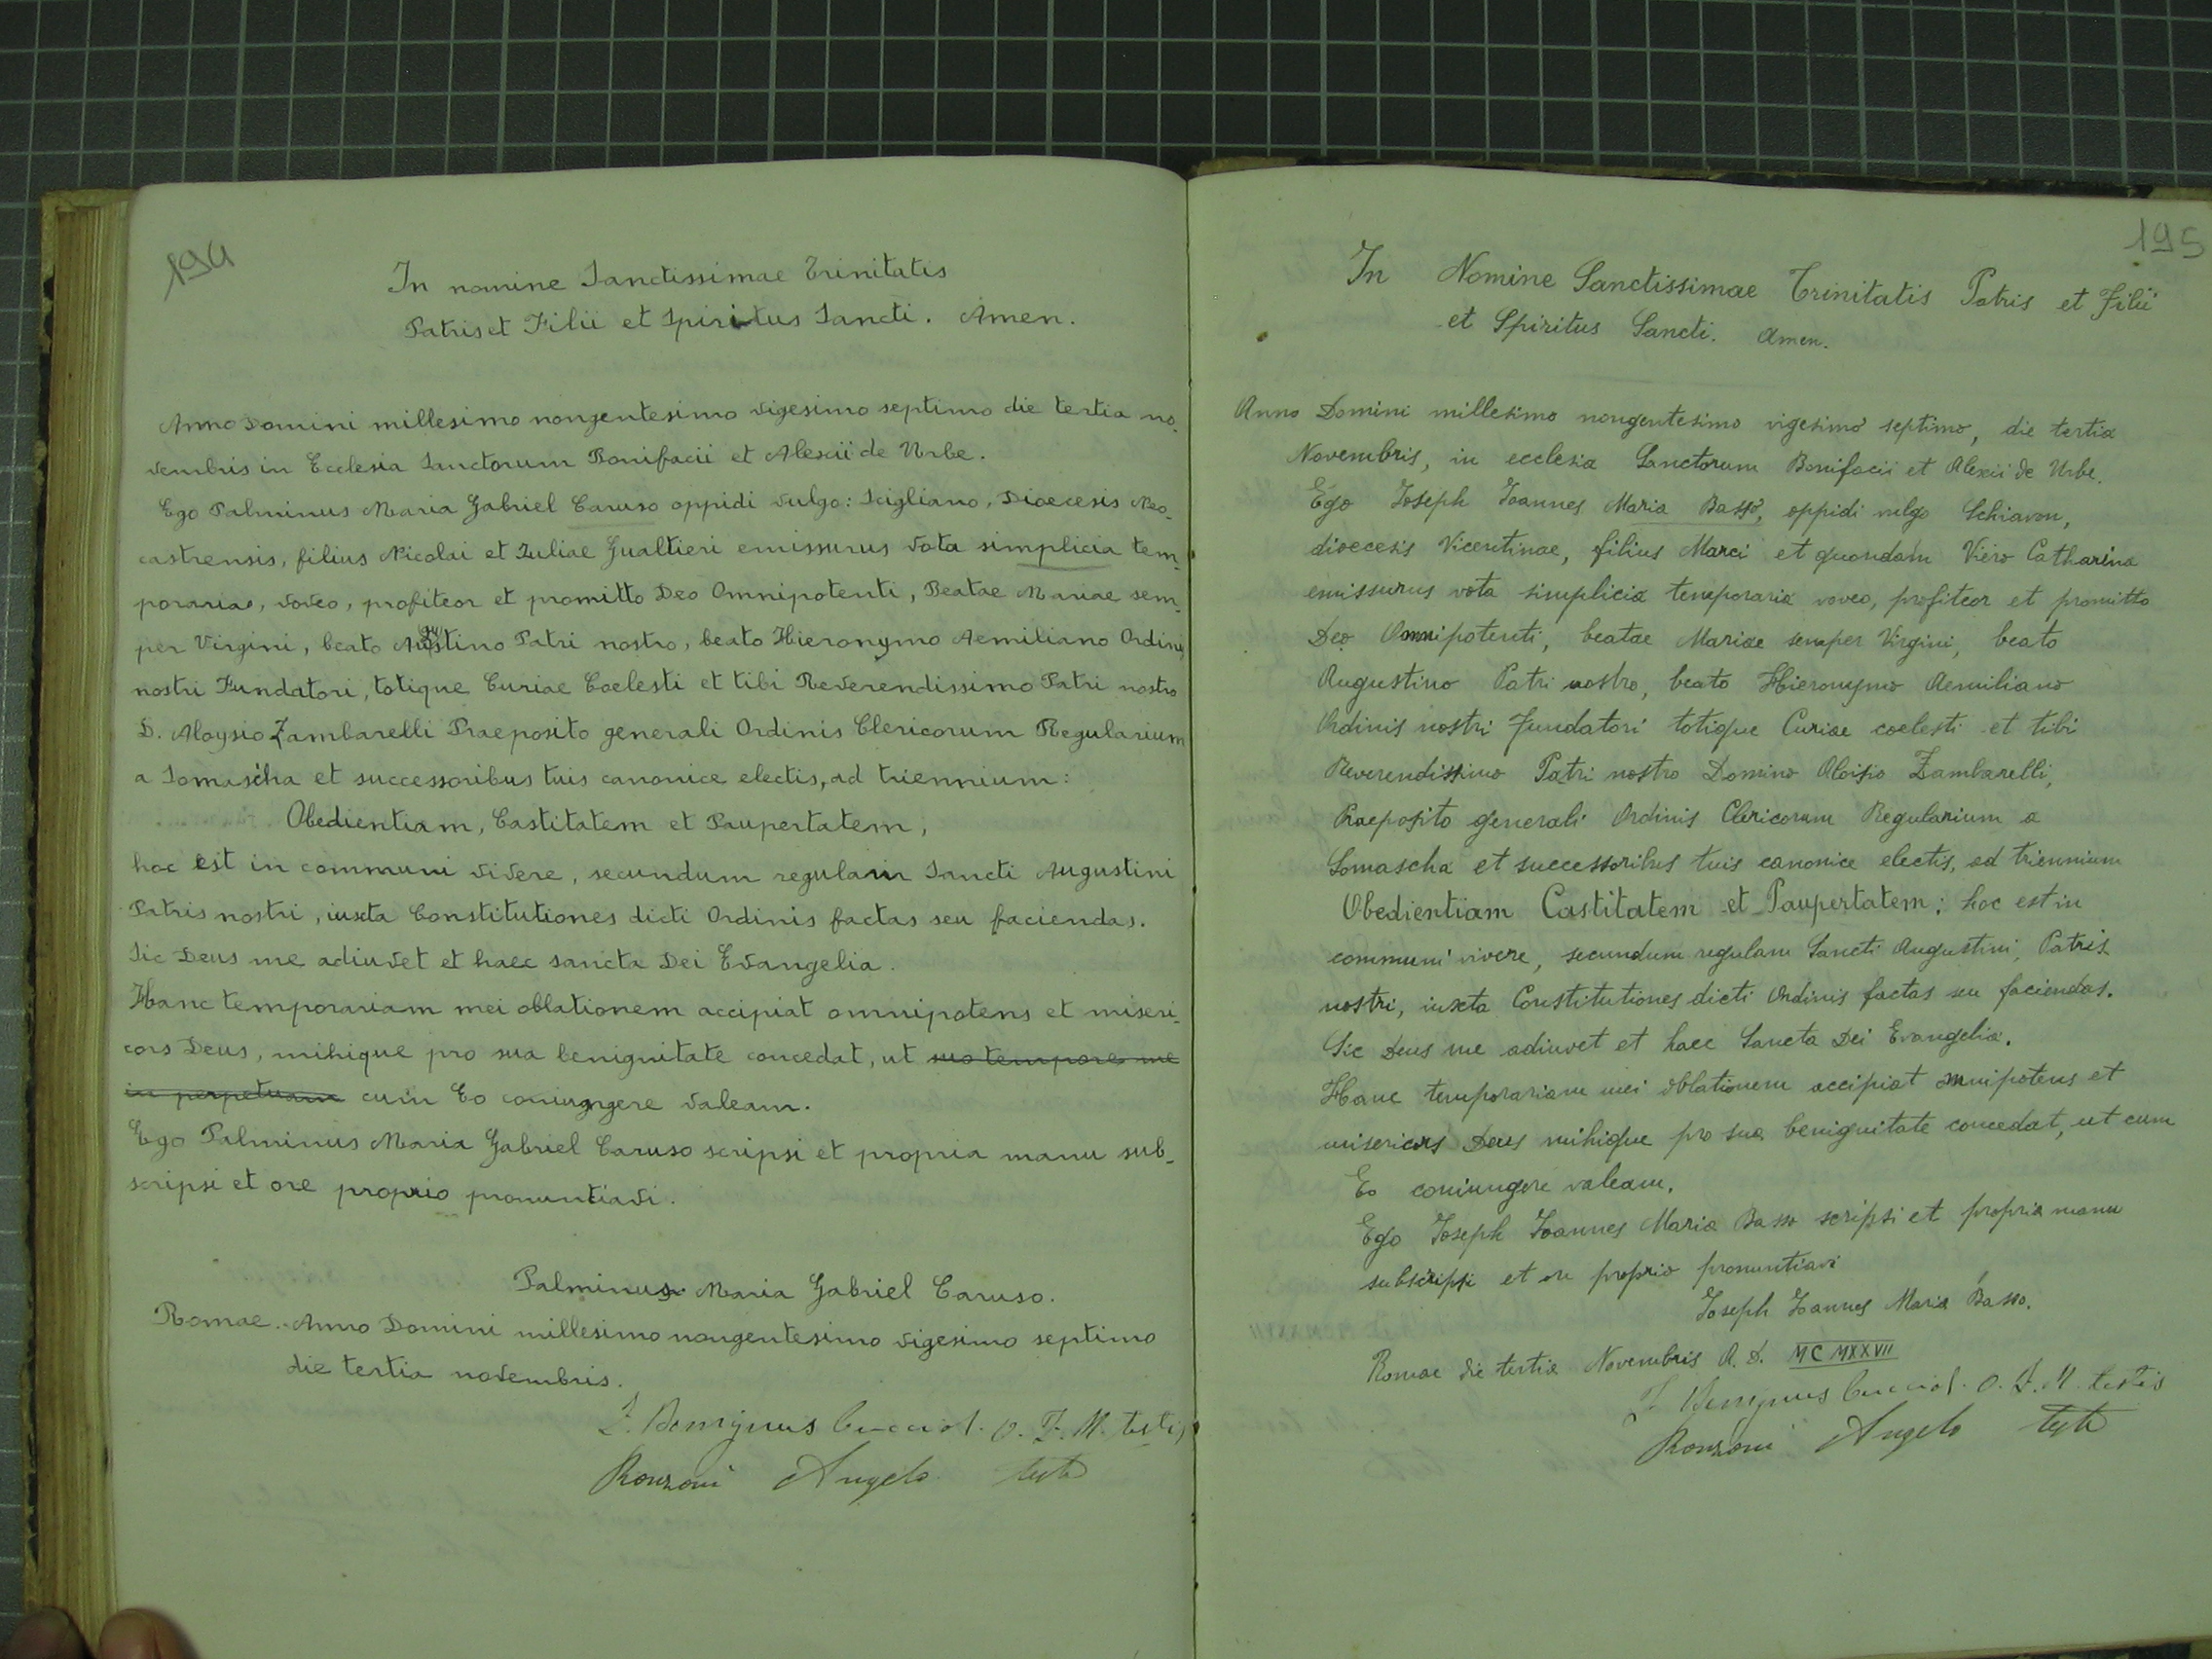 194
In nomine Sanctissimae Trinitatis
Patris et Filii et Spiritus Sancti. Amen.
Anno Domini millesimo nongentesimo vigesimo septimo die tertia no-
vembris in Ecclesia Sanctorum Bonifacii et Alexii de Urbe.
Ego Palminus Maria Gabriel Caruso oppidi vulgo: Scigliano, Dioecesis Neo-
castrensis, filius Nicolai et Juliae Gualtieri emissurus vota simplicia tem-
poraria, voveo, profiteor et promitto Deo Omnipotenti, Beatae Mariae sem-
per Virgini, beato Augustino Patri nostro, beato Hieronymo Aemiliano Ordinis
nostri Fundatori, totique Curiae Coelesti et tibi Reverendissimo Patri nostro
D. Aloysio Zambarelli Praeposito generali Ordinis Clericorum Regularium
a Somascha et successoribus tuis canonice electis, ad triennium:
Obedientiam, Castitatem et Paupertatem,
hoc est in communi vivere, secundum regulam Sancti Augustini
Patris nostri, iuxta Constitutiones dicti Ordinis factas seu faciendas.
Sic Deus me adiuvet et haec sancta Dei Evangelia.
Hanc temporariam mei oblationem accipiat omnipotens et miseri-
cors Deus, mihique pro sua benignitate concedat, ut suo tempore me
in perpetuam cum Eo coniungere valeam.
Ego Palminus Maria Gabriel Caruso scripsi et propria manu sub-
scripsi et ore proprio pronuntiavi.
Palminus Maria Gabriel Caruso.
Romae. Anno Domini millesimo nongentesimo vigesimo septimo
die tertia novembris.
F. Benignus O. F. M. testis
Ronzoni Angelo teste
195
In Nomine Sanctissimae Trinitatis Patris et Filii
et Spiritus Sancti. Amen.
Anno Domini millesimo nongentesimo vigesimo septimo, die tertia
Novembris, in ecclesia Sanctorum Bonifacii et Alexii de Urbe.
Ego Joseph Joannes Maria Basso, oppidi vulgo Schiavon,
dioecesis Vicentinae, filius Marci et quondam Viero Catharina
emissurus vota simplicia temporaria voveo, profiteor et promitto
Deo Omnipotenti, beatae Mariae semper Virgini, beato
Augustino Patri nostro, beato Hieronymo Aemiliano
Ordinis nostri Fundatori totique Curiae coelesti et tibi
Reverendissimo Patri nostro Domino Aloisio Zambarelli,
Praeposito generali Ordinis Clericorum Regularium a
Somascha et successoribus tuis canonice electis, ad triennium
Obedientiam Castitatem et Paupertatem; hoc est in
communi vivere, secundum regulam Sancti Augustini, Patris
nostri, iuxta Constitutiones dicti Ordinis factas seu faciendas.
Sic Deus me adiuvet et haec Sancta Dei Evangelia.
Hanc temporariam mei oblationem accipiat omnipotens et
misericors Deus mihique pro sua benignitate concedat, ut cum
Eo coniungere valeam.
Ego Joseph Joannes Maria Basso scripsi et propria manu
subscripsi et ore proprio pronuntiavi
Joseph Joannes Maria Basso.
Romae die tertia Novembris A. D. MCMXXVII
F. Benignus O. F. M. testis
Ronzoni Angelo teste